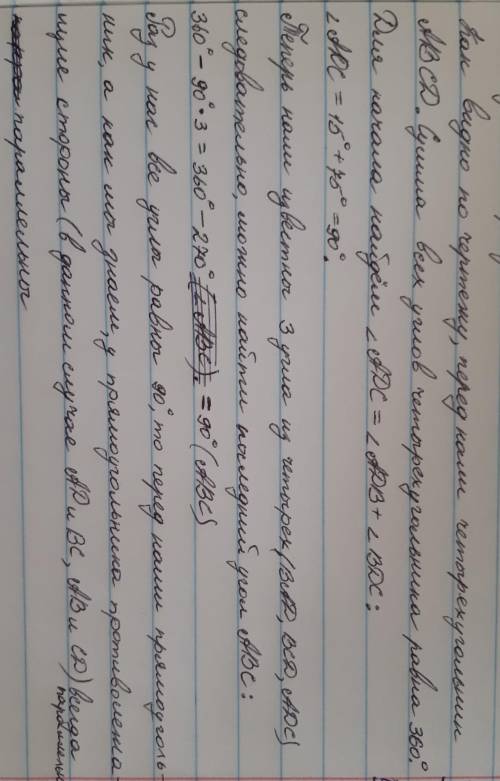 Как видно по чертежу, перед нами четырехугольник
ABCD. Сумма всех углов четырехугольника равна 360°.
Для начала найдём ∠ADC = ∠ADB + ∠BDC:
∠ADC = 15° + 75° = 90°.
Теперь нам известны 3 угла из четырех (BAD, BCD, ADC)
следовательно, можно найти последний угол ABC:
360° - 90°·3 = 360° - 270° (∠ABC). = 90° (ABC)
Раз у нас все углы равны 90°, то перед нами прямоуголь-
ник, а как мы знаем, у прямоугольника противолежа-
щие стороны (в данном случае AD и BC, AB и CD) всегда
параллельны